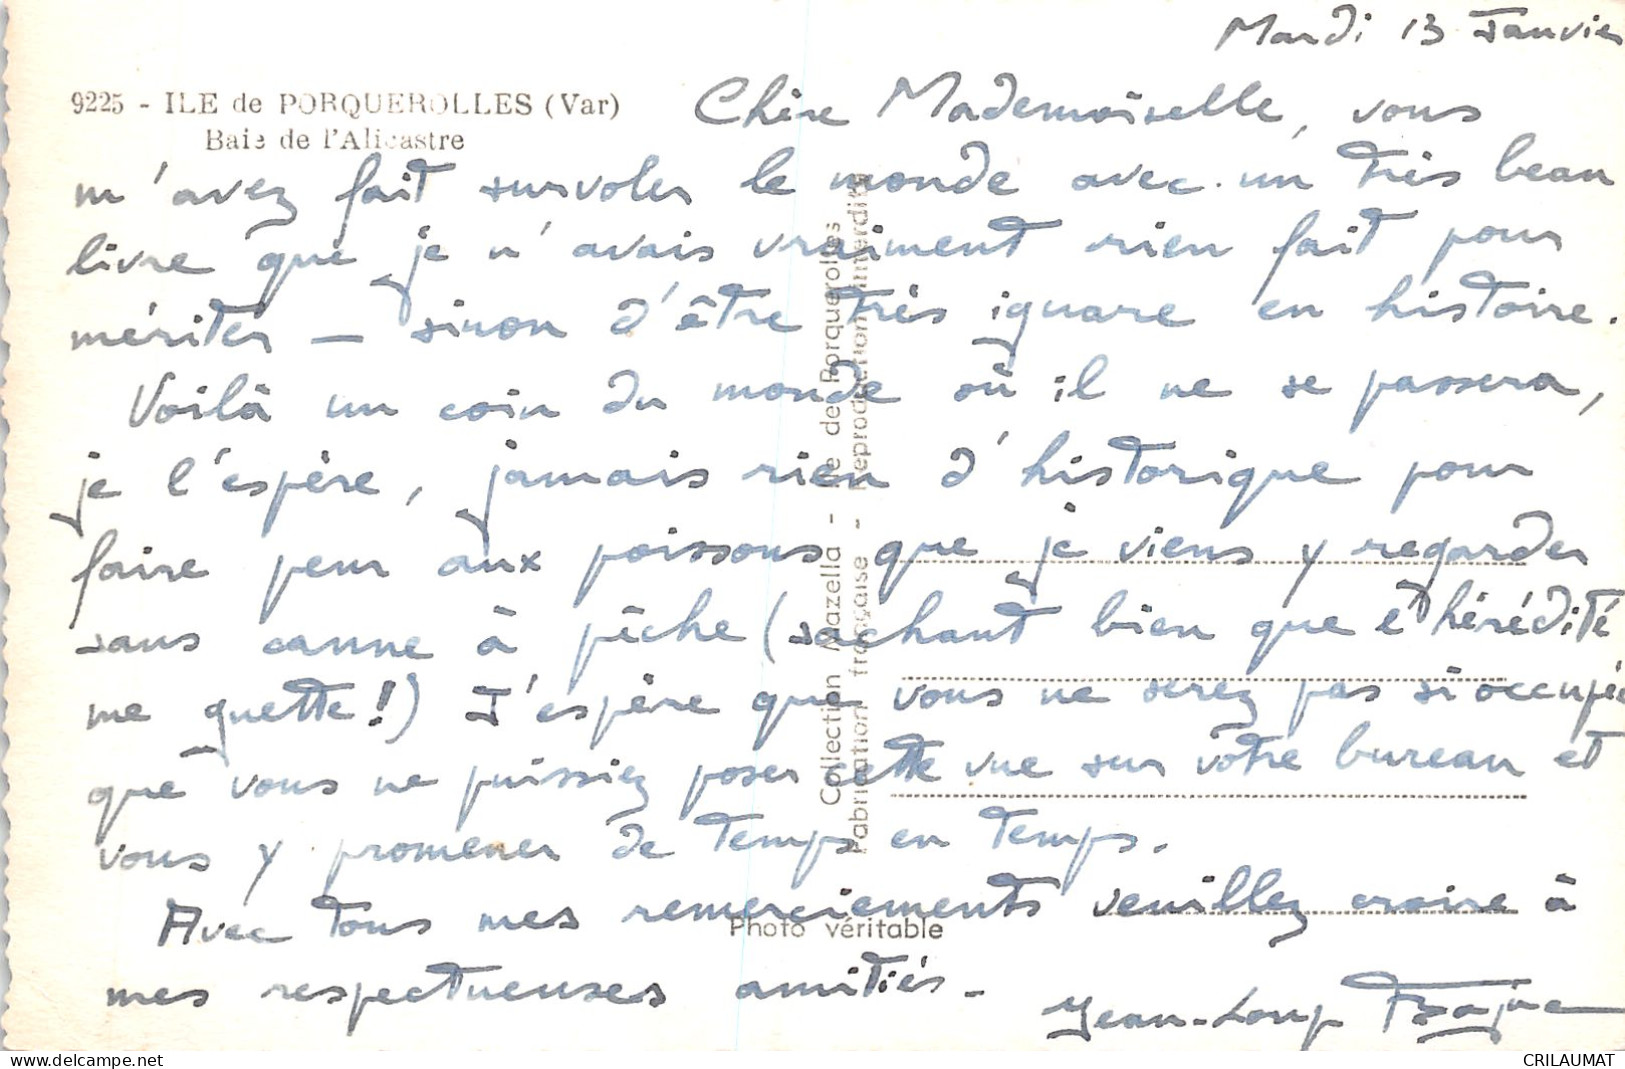 Mardi 13 Janvier
9225 - ILE de PORQUEROLLES (Var)
Baie de l'Alicastre
Chère Mademoiselle, vous
m'avez fait survoler le monde avec un très beau
livre que je n'avais vraiment rien fait pour
mériter — sinon d'être très ignare en histoire.
Voilà un coin du monde où il ne se passera,
je l'espère, jamais rien d'historique pour
faire peur aux poissons que je viens y regarder
sans canne à pêche (sachant bien que l'hérédité
me guette!) J'espère que vous ne serez pas si occupée
que vous ne puissiez poser cette vue sur votre bureau et
vous y promener de temps en temps.
Avec tous mes remerciements veuillez croire à
mes respectueuses amitiés -
Jean-Loup
Collection Mazella - Ile de Porquerolles
Fabrication française - Reproduction interdite
Photo véritable
www.delcampe.net
CRILAUMAT